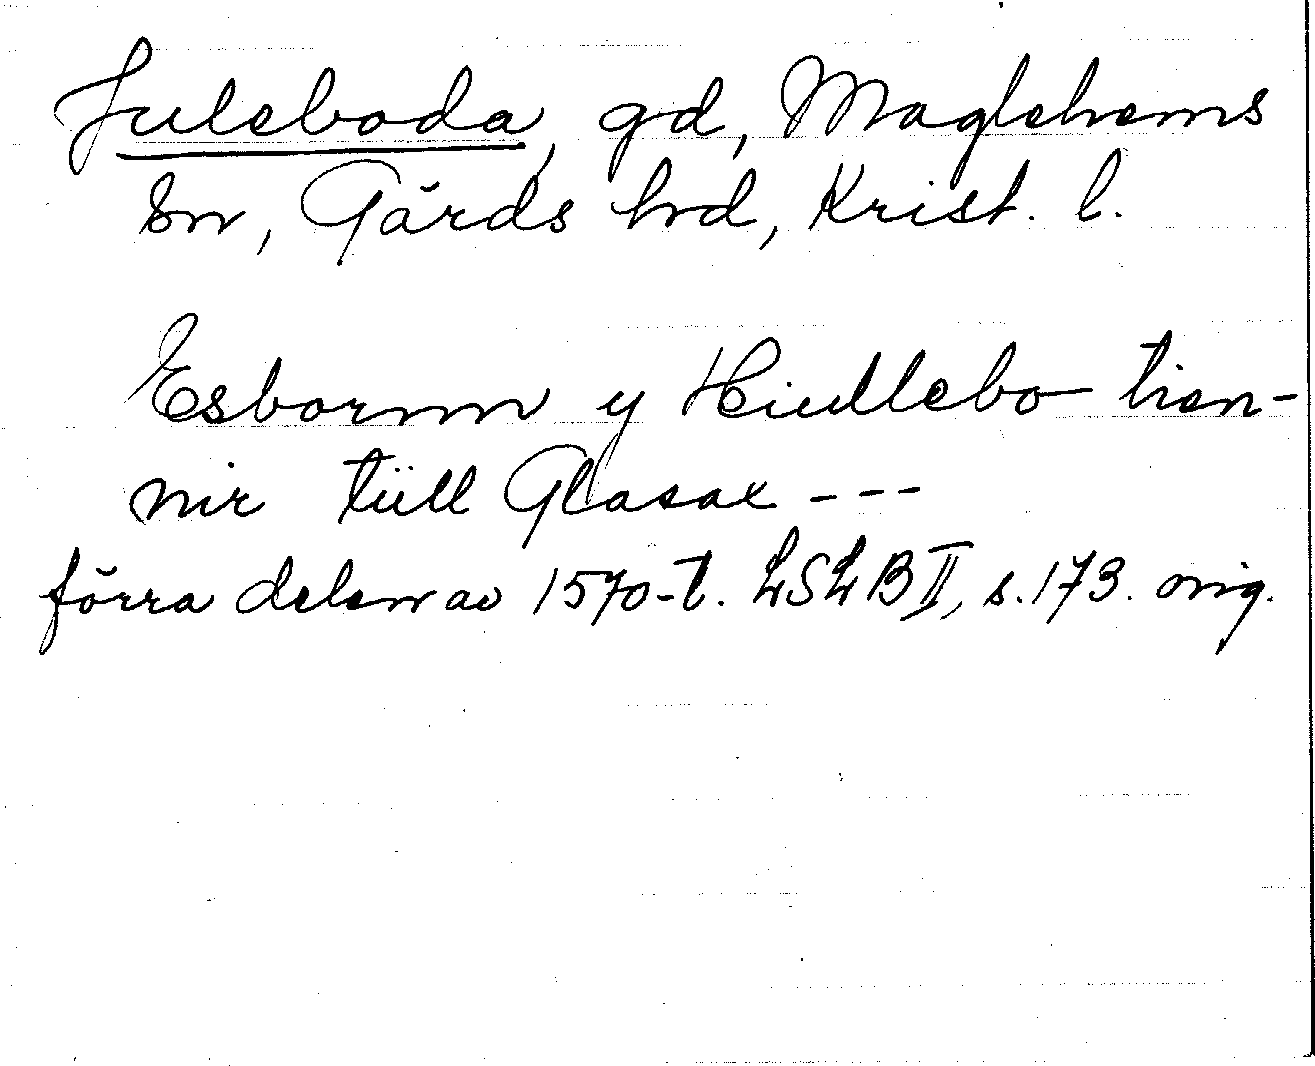 Juleboda, gd, Maglehems
sn, Gärds hrd, Krist. l.
Esbornn y Hiullebo tien-
nir tüll Glasax ---
förra delen av 1570-t. LSLB II, s. 173. orig.